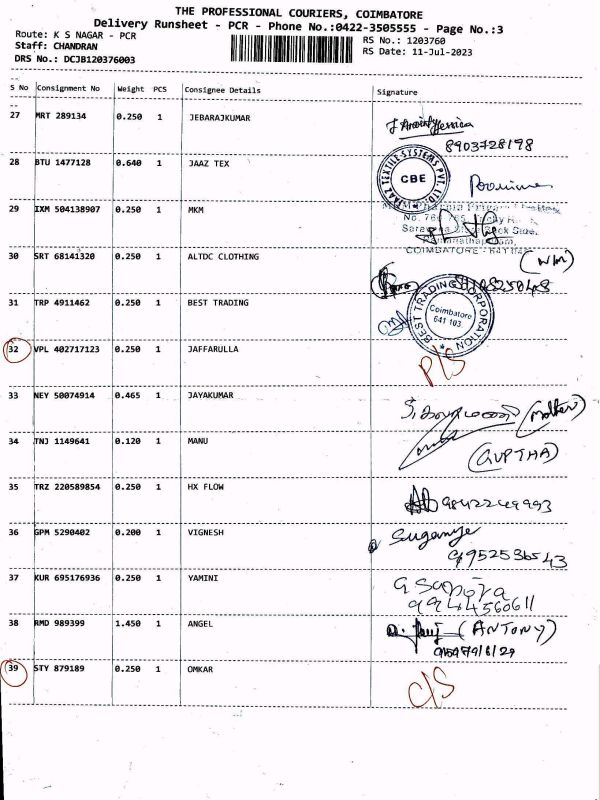 THE PROFESSIONAL COURIERS, COIMBATORE
Delivery Runsheet - PCR - Phone No.:0422-3505555 - Page No.:3
Route: K S NAGAR - PCR
RS No.: 1203760
Staff: CHANDRAN
RS Date: 11-Jul-2023
DRS No.: DCJB120376003
S No Consignment No Weight PCS Consignee Details Signature
27 MRT 289134 0.250 1 JEBARAJKUMAR
8903728198
28 BTU 1477128 0.640 1 JAAZ TEX
JAAZ TEXTILE SYSTEMS PVT. LTD.
CBE
29 IXM 504138907 0.250 1 MKM
COIMBATORE
30 SRT 68141320 0.250 1 ALTDC CLOTHING
(W/M)
31 TRP 4911462 0.250 1 BEST TRADING
BEST TRADING CORPORATION
Coimbatore
641 103
32 VPL 402717123 0.250 1 JAFFARULLA
P/S
33 NEY 50074914 0.465 1 JAYAKUMAR
(Mother)
34 TNJ 1149641 0.120 1 MANU
(GUPTHA)
35 TRZ 220589854 0.250 1 HX FLOW
9842249993
36 GPM 5290402 0.200 1 VIGNESH
Suganya
37 KUR 695176936 0.250 1 YAMINI
9944560611
38 RMD 989399 1.450 1 ANGEL
(ANTONY)
39 STY 879189 0.250 1 OMKAR
C/S